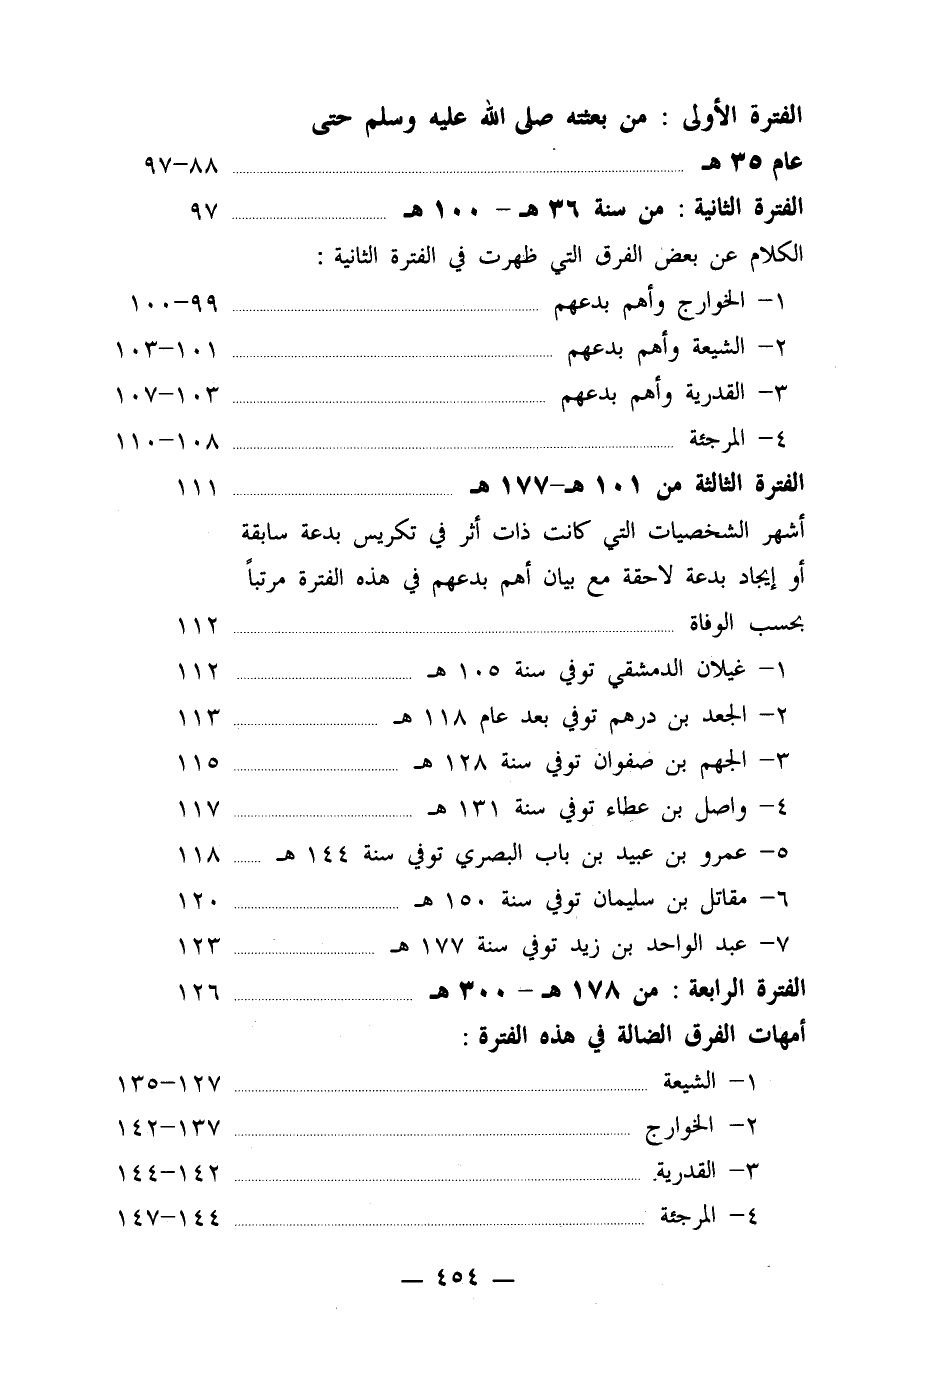 الفترة الأولى : من بعثته صلى الله عليه وسلم حتى
عام ٣٥ هـ ........ ٨٨–٩٧
الفترة الثانية : من سنة ٣٦ هـ – ١٠٠ هـ ........ ٩٧
الكلام عن بعض الفرق التي ظهرت في الفترة الثانية :
١– الخوارج وأهم بدعهم ........ ٩٩–١٠٠
٢– الشيعة وأهم بدعهم ........ ١٠١–١٠٣
٣– القدرية وأهم بدعهم ........ ١٠٣–١٠٧
٤– المرجئة ........ ١٠٨–١١٠
الفترة الثالثة من ١٠١ هـ–١٧٧ هـ ........ ١١١
أشهر الشخصيات التي كانت ذات أثر في تكريس بدعة سابقة
أو إيجاد بدعة لاحقة مع بيان أهم بدعهم في هذه الفترة مرتباً
بحسب الوفاة ........ ١١٢
١– غيلان الدمشقي توفي سنة ١٠٥ هـ ........ ١١٢
٢– الجعد بن درهم توفي بعد عام ١١٨ هـ ........ ١١٣
٣– الجهم بن صفوان توفي سنة ١٢٨ هـ ........ ١١٥
٤– واصل بن عطاء توفي سنة ١٣١ هـ ........ ١١٧
٥– عمرو بن عبيد بن باب البصري توفي سنة ١٤٤ هـ ........ ١١٨
٦– مقاتل بن سليمان توفي سنة ١٥٠ هـ ........ ١٢٠
٧– عبد الواحد بن زيد توفي سنة ١٧٧ هـ ........ ١٢٣
الفترة الرابعة : من ١٧٨ هـ – ٣٠٠ هـ ........ ١٢٦
أمهات الفرق الضالة في هذه الفترة :
١– الشيعة ........ ١٢٧–١٣٥
٢– الخوارج ........ ١٣٧–١٤٢
٣– القدرية ........ ١٤٢–١٤٤
٤– المرجئة ........ ١٤٤–١٤٧
— ٤٥٤ —